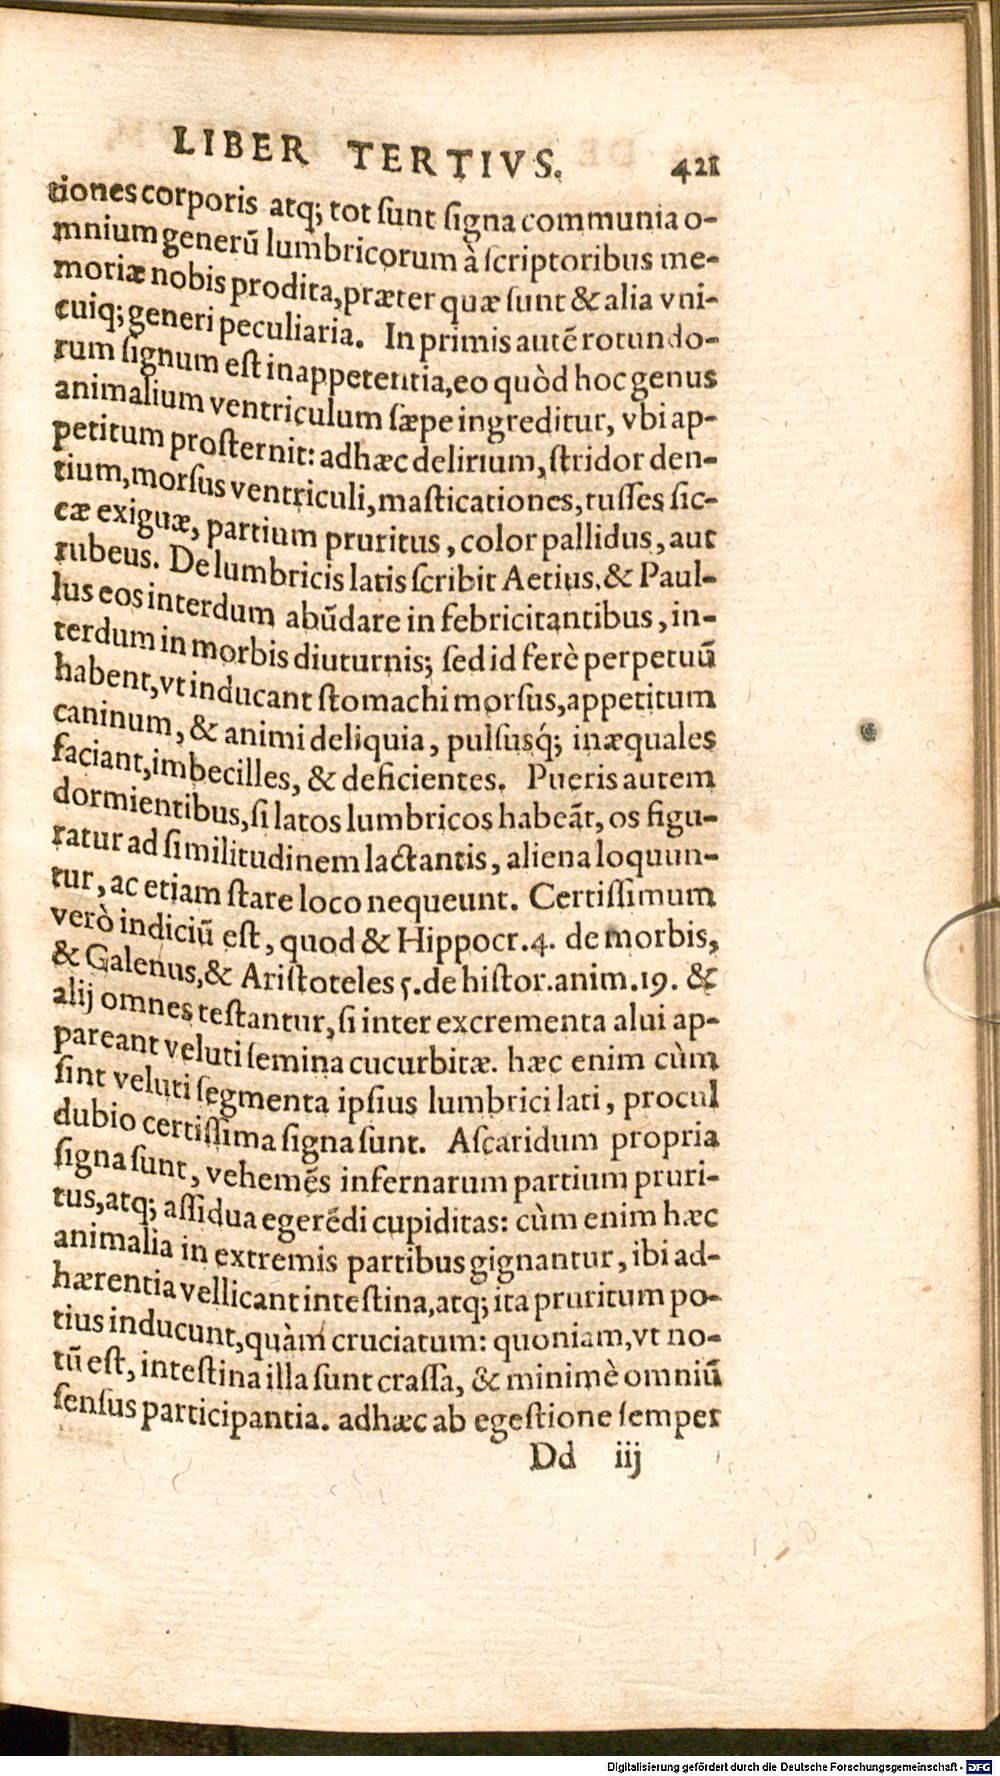 LIBER TERTIVS. 421
tiones corporis atq; tot sunt signa communia o-
mnium generū lumbricorum à scriptoribus me-
moriæ nobis prodita, præter quæ sunt & alia vni-
cuiq; generi peculiaria. In primis autē rotundo-
rum signum est inappetentia, eo quòd hoc genus
animalium ventriculum sæpe ingreditur, vbi ap-
petitum prosternit: adhæc delirium, stridor den-
tium, morsus ventriculi, masticationes, tusses sic-
cæ exiguæ, partium pruritus, color pallidus, aut
rubeus. De lumbricis latis scribit Aetius, & Paul-
lus eos interdum abūdare in febricitantibus, in-
terdum in morbis diuturnis; sed id ferè perpetuū
habent, vt inducant stomachi morsus, appetitum
caninum, & animi deliquia, pulsusq́; inæquales
faciant, imbecilles, & deficientes. Pueris autem
dormientibus, si latos lumbricos habeāt, os figu-
ratur ad similitudinem lactantis, aliena loquun-
tur, ac etiam stare loco nequeunt. Certissimum
verò indiciū est, quod & Hippocr. 4. de morbis,
& Galenus, & Aristoteles 5. de histor. anim. 19. &
alij omnes testantur, si inter excrementa alui ap-
pareant veluti semina cucurbitæ. hæc enim cùm
sint veluti segmenta ipsius lumbrici lati, procul
dubio certissima signa sunt. Ascaridum propria
signa sunt, vehemēs infernarum partium pruri-
tus, atq; assidua egerēdi cupiditas: cùm enim hæc
animalia in extremis partibus gignantur, ibi ad-
hærentia vellicant intestina, atq; ita pruritum po-
tius inducunt, quàm cruciatum: quoniam, vt no-
tū est, intestina illa sunt crassa, & minimè omniū
sensus participantia. adhæc ab egestione semper
Dd iij
Digitalisierung gefördert durch die Deutsche Forschungsgemeinschaft - DFG